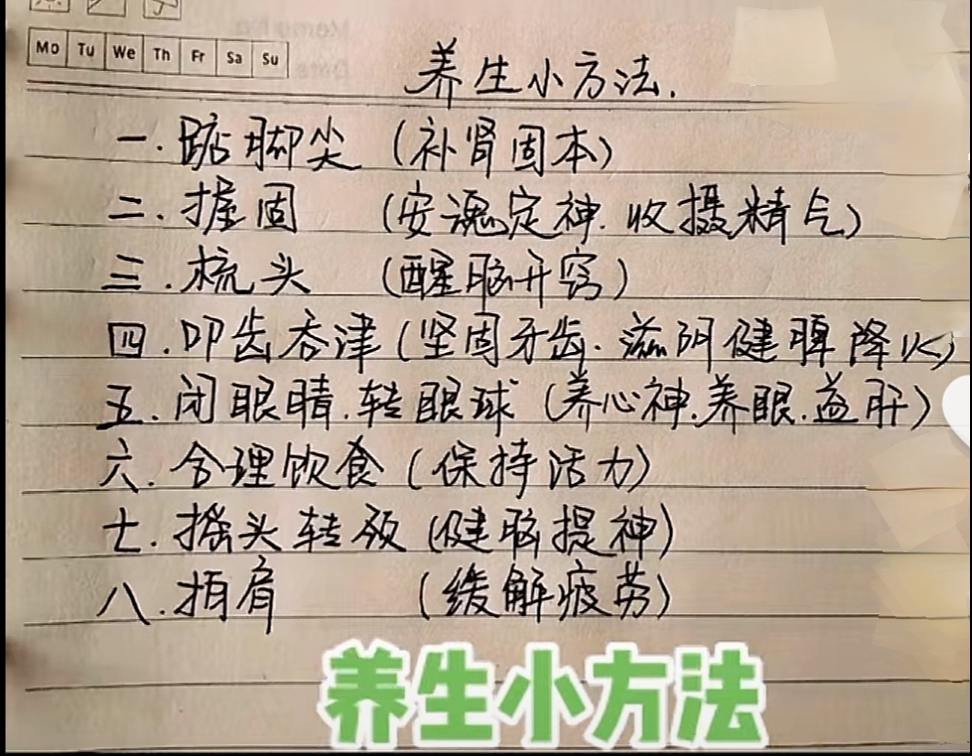 Mo Tu We Th Fr Sa Su
养生小方法.
一.踮脚尖(补肾固本)
二.握固(安魂定神.收摄精气)
三.梳头(醒脑开窍)
四.叩齿吞津(坚固牙齿.滋阴健脾降火)
五.闭眼睛.转眼球(养心神.养眼.益肝)
六.合理饮食(保持活力)
七.摇头转颈(健脑提神)
八.拍肩(缓解疲劳)
养生小方法